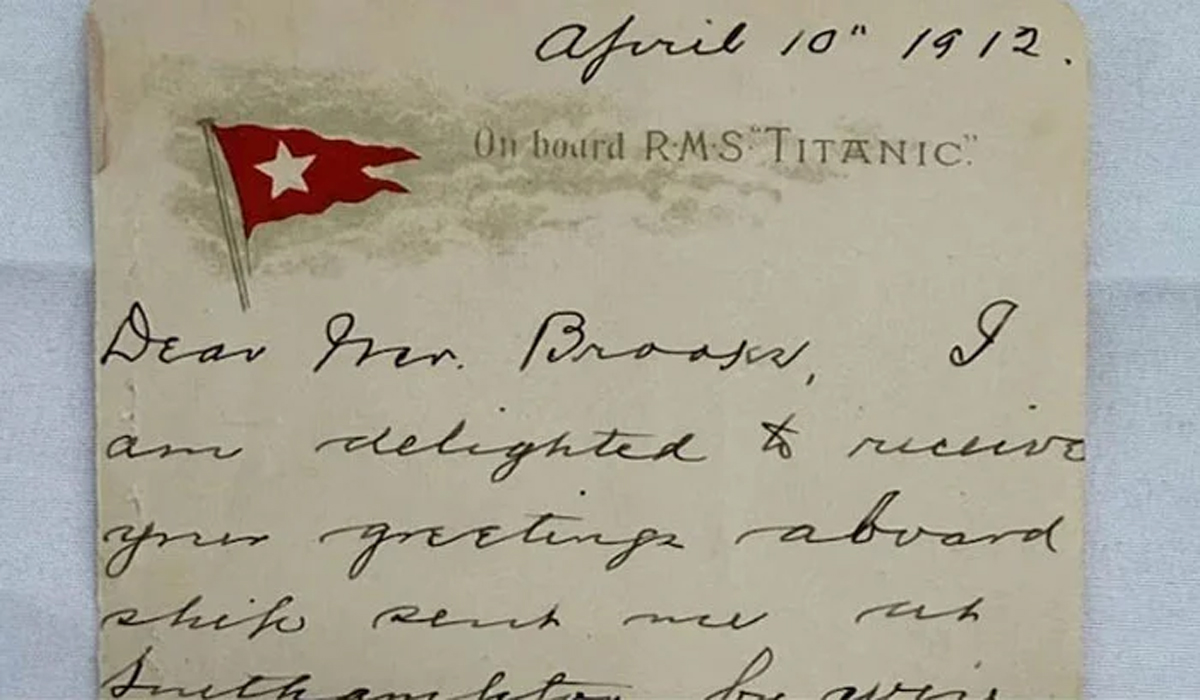 April 10" 1912.
On board R·M·S "TITANIC".
Dear Mr. Brooks, I
am delighted to receive
your greetings aboard
ship sent me at
Southampton by